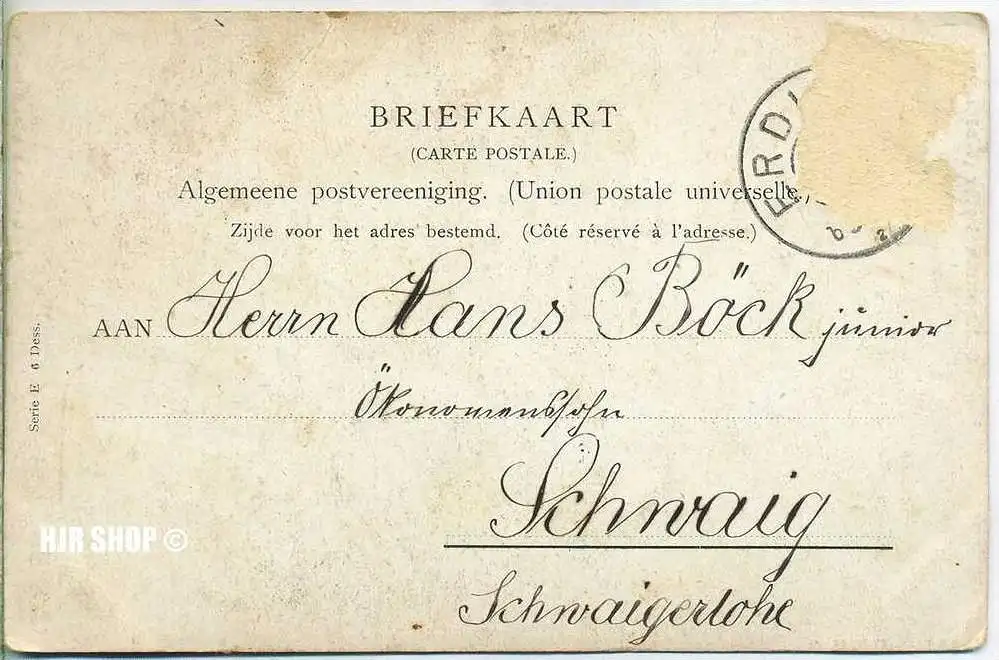 BRIEFKAART
(CARTE POSTALE.)
Algemeene postvereeniging. (Union postale universelle.)
Zijde voor het adres bestemd. (Côté réservé à l'adresse.)
AAN Herrn Hans Böck junior
Ökonomenssohn
Schwaig
Schwaigerlohe
Serie E 6 Dess.
ERDI
HJR SHOP ©